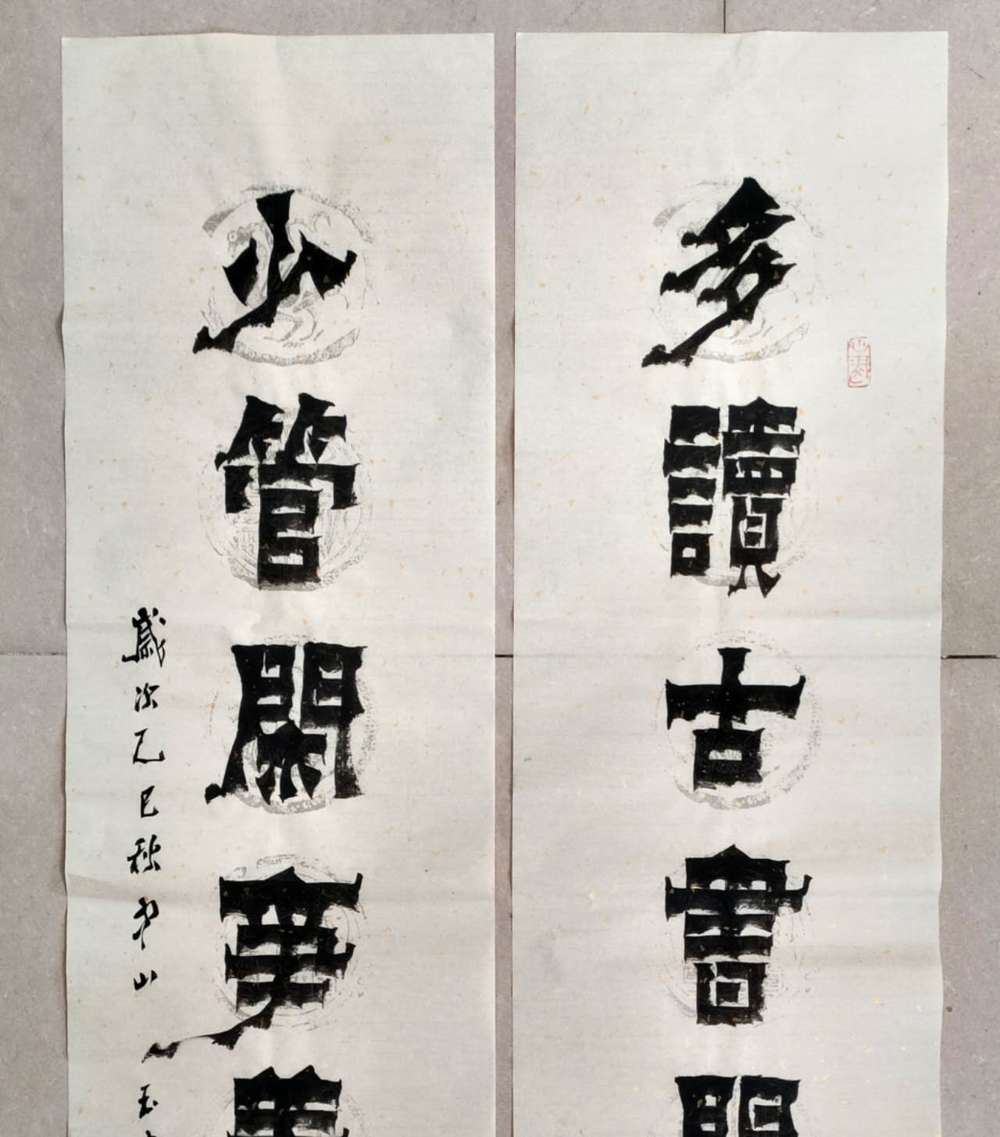 多讀古書
少管閑事
歲次乙巳秋